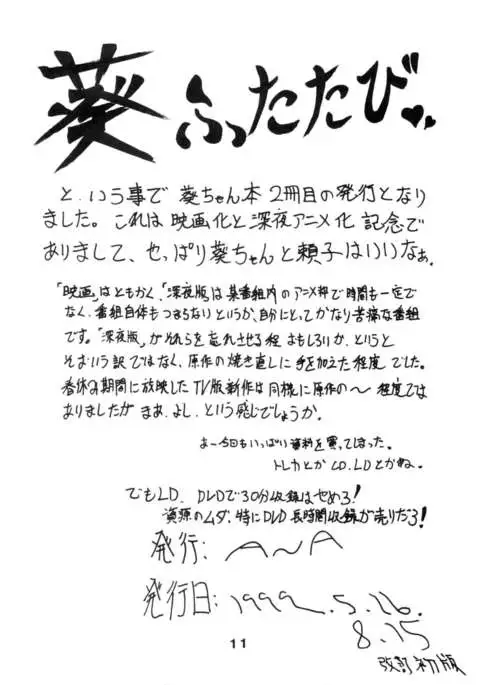 葵ふったたび
と.いう事で 葵ちゃん本 2冊目の発行となり
ました。これは 映画化と深夜アニメ化 記念で
ありまして、やっぱり葵ちゃんと頼子はいいなぁ.
「映画」はともかく、「深夜版」は某番組内のアニメ枠で時間も一定で
なく、番組自体もつまらないというか、自分にとってかなり苦痛な番組
です。「深夜版」がそれらを忘れさせる程 おもしろいか、というと
そおいう訳ではなく、原作の焼き直しに手を加えた程度でした。
春休み期間に放映したTV版新作は同様に原作の〜 程度では
ありましたが まあ.よし.という感じでしょうか.
よー今回もいっぱい資料を買ってしまった。
トレカとかCD.LDとかね。
でもLD. DVDで30分収録はやめろ!
資源のムダ.特にDVD 長時間収録が売りだろ!
発行: A〜A
発行日: 1999.5.16.
8.15
改訂初版
11